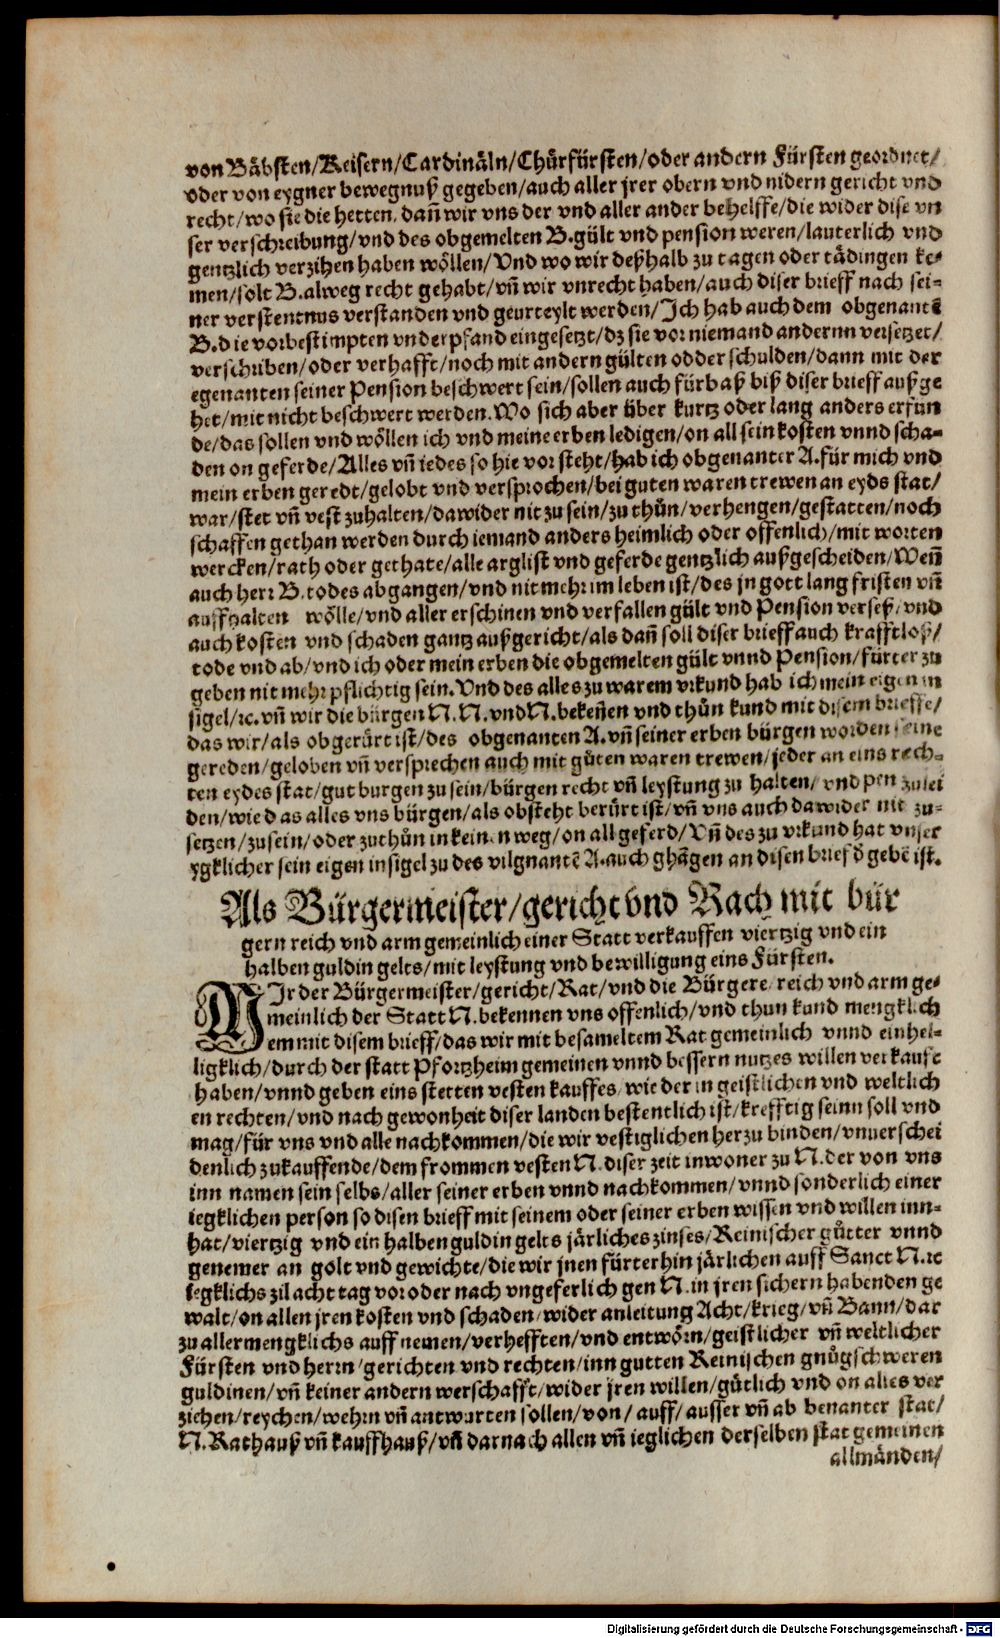 von Bäbsten/Keisern/Cardinäln/Chůrfürsten/oder andern Fürsten geordnet/
oder von eygner bewegnuß gegeben/auch aller jrer obern vnd nidern gericht vnd
recht/wo sie die hetten, dañ wir vns der vnd aller ander behelffe/die wider dise vn
ser verschreibung/vnd des obgemelten B.gült vnd pension weren/lauterlich vnd
gentzlich verzihen haben wöllen/Vnd wo wir deßhalb zu tagen oder tädingen ke-
men/solt B.alweg recht gehabt/vñ wir vnrecht haben/auch diser brieff nach sei-
ner verstentnus verstanden vnd geurteylt werden/Ich hab auch dem obgenantē
B.die vorbestimpten vnderpfand eingesetzt/dz sie vor niemand andernn versetzet/
verschriben/oder verhafft/noch mit andern gülten odder schulden/dann mit der
egenanten seiner Pension beschwert sein/sollen auch fürbaß biß diser brieff außge
het/mit nicht beschwert werden.Wo sich aber über kurtz oder lang anders erfün
de/das sollen vnd wöllen ich vnd meine erben ledigen/on all sein kosten vnnd scha-
den on geferde/Alles vñ iedes so hie vor steht/hab ich obgenanter A.für mich vnd
mein erben geredt/gelobt vnd versprochen/bei guten waren trewen an eyds stat/
war/stet vñ vest zuhalten/dawider nit zu sein/zu thůn/verhengen/gestatten/noch
schaffen gethan werden durch iemand anders heimlich oder offenlich/mit worten
wercken/rath oder gethate/alle arglist vnd geferde gentzlich außgescheiden/Weñ
auch herr B.todes abgangen/vnd nit mehr im leben ist/des jn gott lang fristen vñ
auffhalten wölle/vnd aller erschinen vnd verfallen gült vnd Pension verseß/vnd
auch kosten vnd schaden gantz außgericht/als dañ soll diser brieff auch krafftloß/
tode vnd ab/vnd ich oder mein erben die obgemelten gült vnnd Pension/fürter zu
geben nit mehr pflichtig sein.Vnd des alles zu warem vrkund hab ich mein eigen in
sigel/rc.vñ wir die bürgen N.N.vnd N.bekeñen vnd thůn kund mit disem brieffe/
das wir/als obgerürt ist/des obgenanten A.vñ seiner erben bürgen worden seine
gereden/geloben vñ versprechen auch mit gůten waren trewen/jeder an eins rech-
ten eydes stat/gut burgen zu sein/bürgen recht vñ leystung zu halten/vnd pen zulei
den/wie das alles vns bürgen/als obsteht berürt ist/vñ vns auch dawider nit zu-
setzen/zusein/oder zuthůn in keinen weg/on all geferd/Vñ des zu vrkund hat vnser
ygklicher sein eigen insigel zu des vilgnantē A.auch ghāgen an disen brief ð gebē ist.
Als Bürgermeister/gericht vnd Rach mit bür
gern reich vnd arm gemeinlich einer Statt verkauffen viertzig vnd ein
halben guldin gelts/mit leystung vnd bewilligung eins Fürsten.
WIr der Bürgermeister/gericht/Rat/vnd die Bürgere reich vnd arm ge-
meinlich der Statt N.bekennen vns offenlich/vnd thun kund mengklich
em mit disem brieff/das wir mit besameltem Rat gemeinlich vnnd einhel-
ligklich/durch der statt Pfortzheim gemeinen vnnd bessern nutzes willen verkaufe
haben/vnnd geben eins stetten vesten kauffes/wie der in geistlichen vnd weltlich
en rechten/vnd nach gewonheit diser landen bestentlich ist/krefftig seinn soll vnd
mag/für vns vnd alle nachkommen/die wir vestiglichen herzu binden/vnuerschei
denlich zukauffende/dem frommen vesten N.diser zeit inwoner zu N.der von vns
inn namen sein selbs/aller seiner erben vnnd nachkommen/vnnd sonderlich einer
iegklichen person so disen brieff mit seinem oder seiner erben wissen vnd willen inn-
hat/viertzig vnd ein halben guldin gelts järliches zinses/Reinischer gůtter vnnd
genemer an golt vnd gewichte/die wir jnen fürterhin järlichen auff Sanct N.rc
iegklichs zil acht tag vor oder nach vngeferlich gen N.in jren sichern habenden ge
walt/on allen jren kosten vnd schaden/wider anleitung Acht/krieg/vñ Bann/dar
zu allermengklichs auffnemen/verhefften/vnd entwörn/geistlicher vñ weltlicher
Fürsten vnd herrn/gerichten vnd rechten/inn gutten Reinischen gnůgschweren
guldinen/vñ keiner andern werschafft/wider jren willen/gütlich vnd on alles ver
ziehen/reychen/wehrn vñ antwurten sollen/von/auff/ausser vñ ab benanter stat/
N.Rathauß vñ kauffhauß/vñ darnach allen vñ ieglichen derselben stat gemeinen
allmänden/
Digitalisierung gefördert durch die Deutsche Forschungsgemeinschaft - DFG